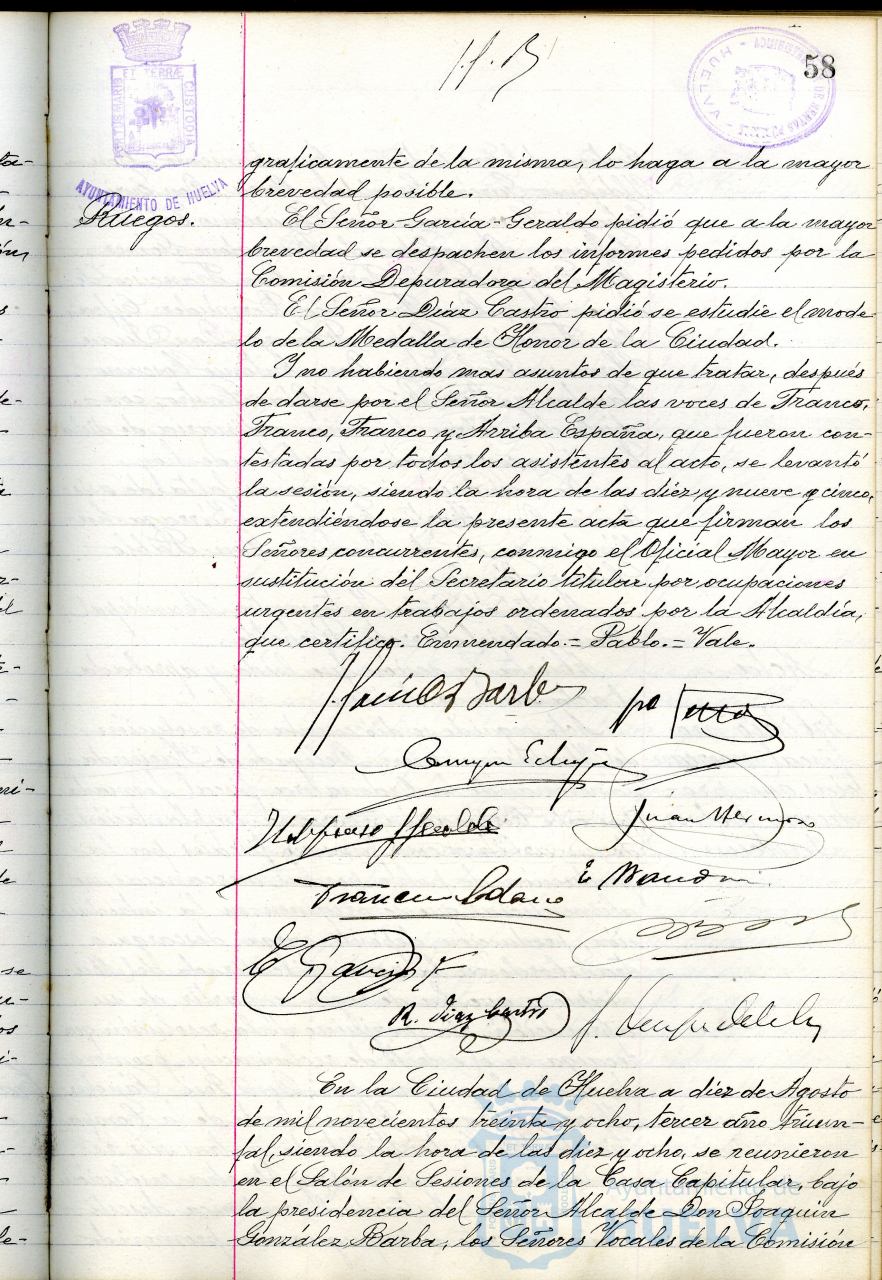 58
PORTUS MARIS ET TERRÆ CUSTODIA
AYUNTAMIENTO DE HUELVA
HUELVA
graficamente de la misma, lo haga a la mayor
brevedad posible.
Ruegos.
El Señor García-Geraldo pidió que a la mayor
brevedad se despachen los informes pedidos por la
Comisión Depuradora del Magisterio.
El Señor Díaz Castro pidió se estudie el mode
lo de la Medalla de Honor de la Ciudad.
Y no habiendo mas asuntos de que tratar, después
de darse por el Señor Alcalde las voces de Franco,
Franco, Franco y Arriba España, que fueron con-
testadas por todos los asistentes al acto, se levantó
la sesión, siendo la hora de las diez y nueve y cinco,
extendiéndose la presente acta que firman los
Señores concurrentes, conmigo el Oficial Mayor en
sustitución del Secretario titular por ocupaciones
urgentes en trabajos ordenados por la Alcaldía,
que certifico. Enmendado.= Pablo.= Vale.
Juan Hermoso
R. Díaz Castro
En la Ciudad de Huelva a diez de Agosto
de mil novecientos treinta y ocho, tercer año triun-
fal, siendo la hora de las diez y ocho, se reunieron
en el Salón de Sesiones de la Casa Capitular, bajo
la presidencia del Señor Alcalde Don Joaquín
González Barba, los Señores Vocales de la Comisión
Ayuntamiento de
HUELVA